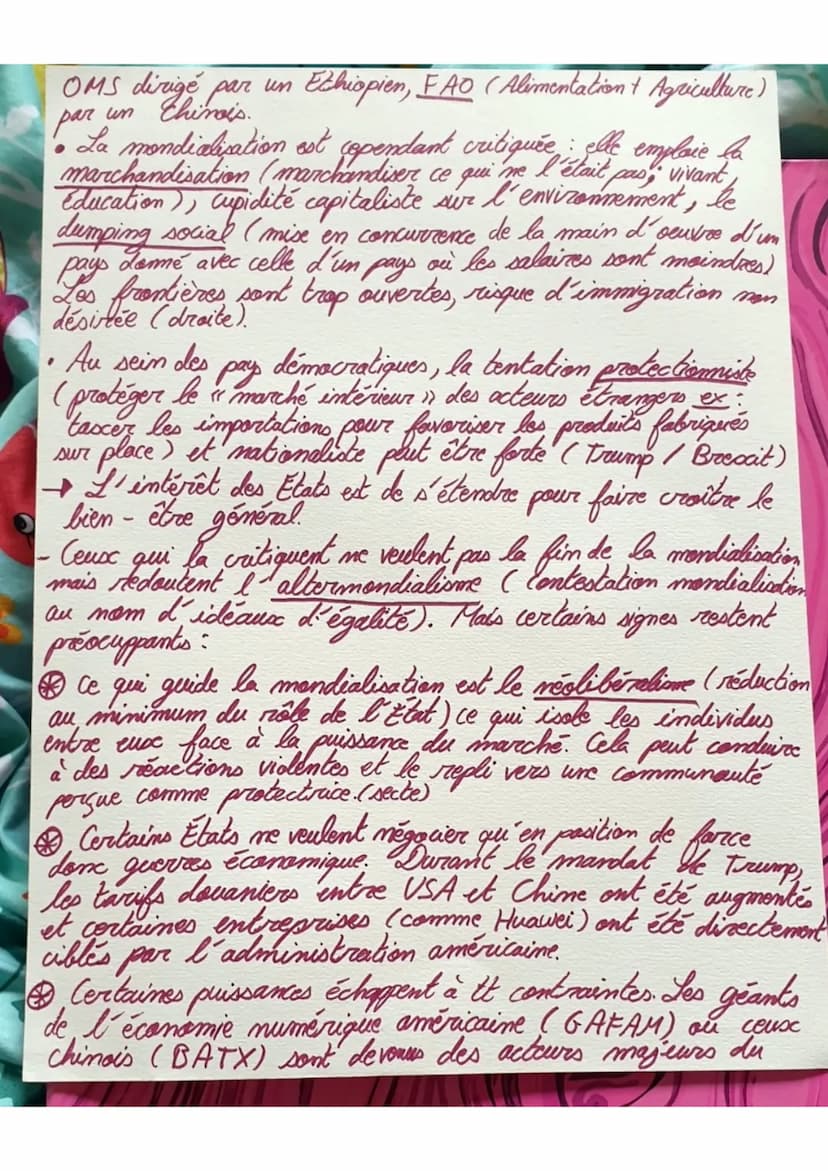 OMS dirigé par un Ethiopien, FAO (Alimentation + Agriculture)
par un Chinois.
• La mondialisation est cependant critiquée : elle emploie la
marchandisation (marchandiser ce qui ne l'était pas ; vivant,
Éducation), cupidité capitaliste sur l'environnement, le
dumping social (mise en concurrence de la main d'oeuvre d'un
pays donné avec celle d'un pays où les salaires sont moindres)
Les frontières sont trop ouvertes, risque d'immigration non
désirée (droite).
• Au sein des pays démocratiques, la tentation protectionniste
(protéger le « marché intérieur » des acteurs étrangers ex :
taxer les importations pour favoriser les produits fabriqués
sur place) et nationaliste peut être forte (Trump / Brexit)
→ L'intérêt des Etats est de s'étendre pour faire croître le
bien-être général.
- Ceux qui la critiquent ne veulent pas la fin de la mondialisation
mais redoutent l'altermondialisme (Contestation mondialisation
au nom d'idéaux d'égalité). Mais certains signes restent
préoccuppants :
⊛ Ce qui guide la mondialisation est le néolibéralisme (réduction
au minimum du rôle de l'État) ce qui isole les individus
entre eux face à la puissance du marché. Cela peut conduire
à des réactions violentes et le repli vers une communauté
perçue comme protectrice. (secte)
⊛ Certains États ne veulent négocier qu'en position de force
donc guerres économique. Durant le mandat de Trump,
les tarifs douaniers entre USA et Chine ont été augmentés
et certaines entreprises (comme Huawei) ont été directement
ciblés par l'administration américaine.
⊛ Certaines puissances échappent à tt contraintes. Les géants
de l'économie numérique américaine (GAFAM) ou ceux
chinois (BATX) sont devenus des acteurs majeurs du